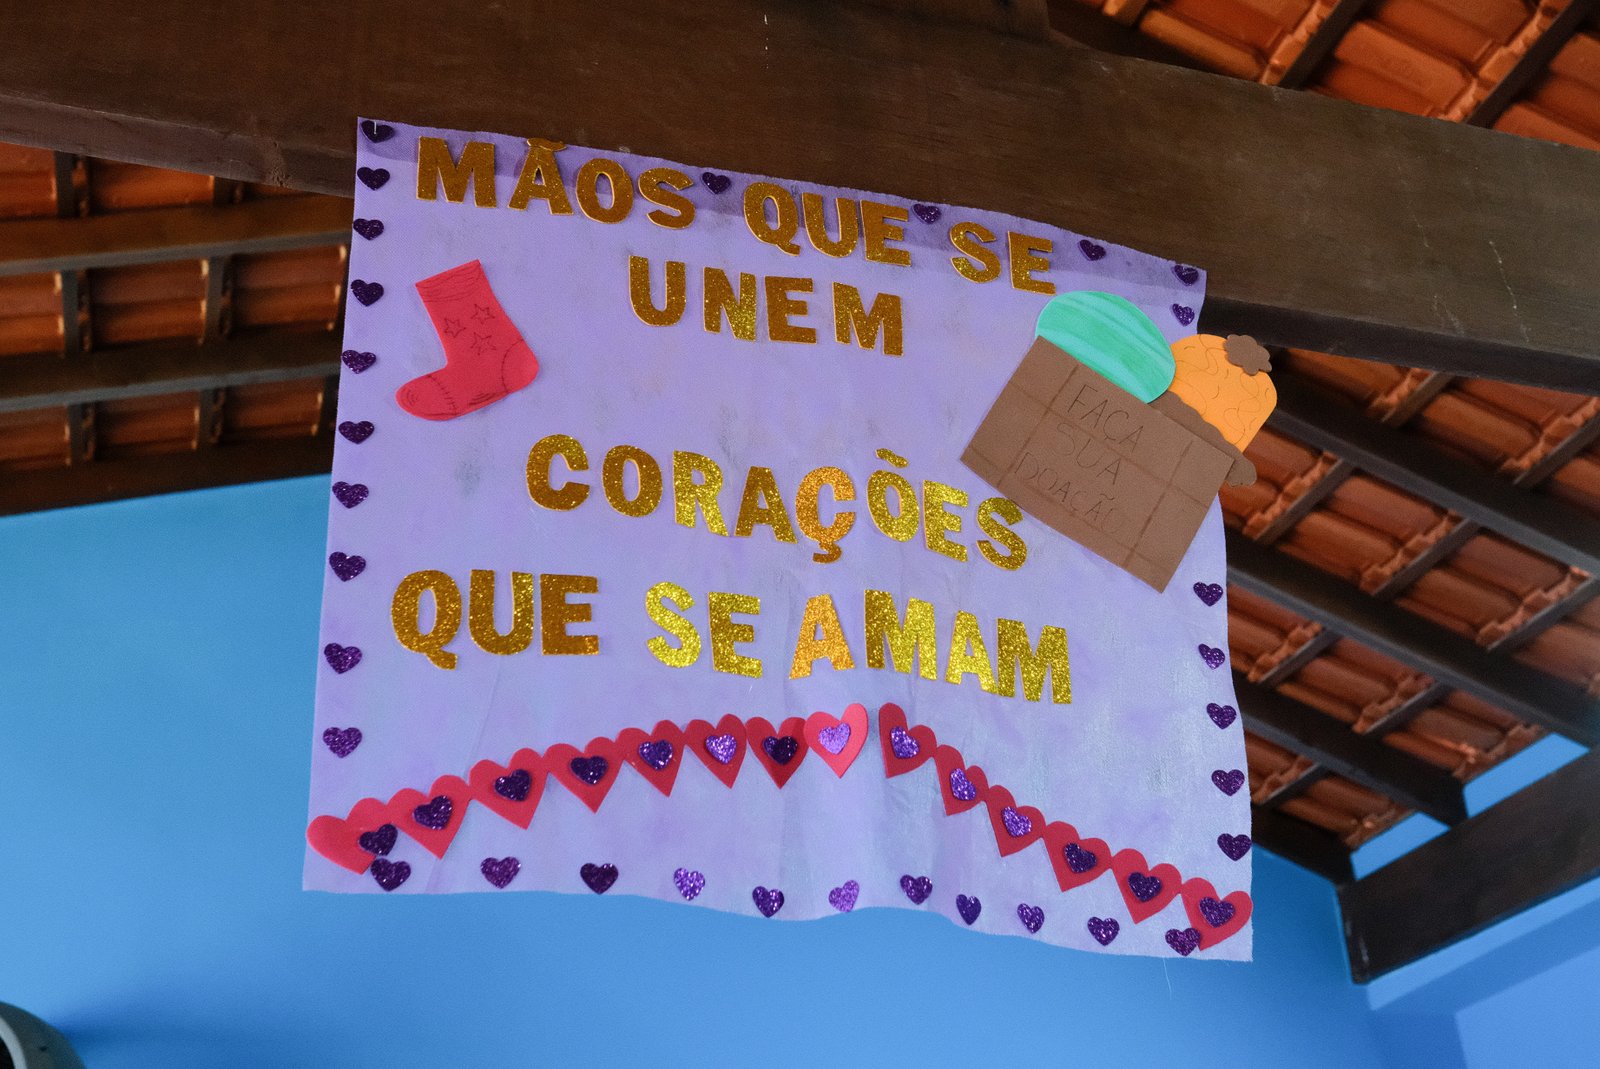 MÃOS QUE SE
UNEM
CORAÇÕES
QUE SE AMAM
FAÇA
SUA
DOAÇÃO